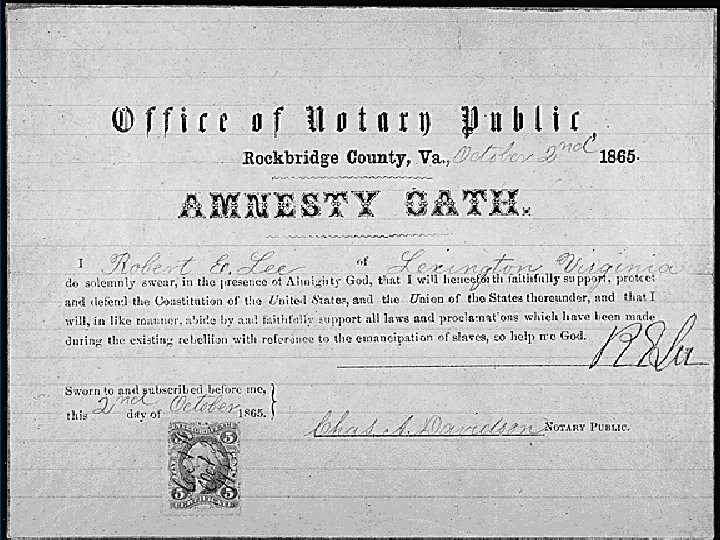 Office of Notary Public,
Rockbridge County, Va., October 2nd 1865.
AMNESTY OATH.
I Robert E. Lee of Lexington Virginia
do solemnly swear, in the presence of Almighty God, that I will henceforth faithfully support, protect
and defend the Constitution of the United States, and the Union of the States thereunder, and that I
will, in like manner, abide by and faithfully support all laws and proclamations which have been made
during the existing rebellion with reference to the emancipation of slaves, so help me God.
R E Lee
Sworn to and subscribed before me,
this 2nd day of October 1865.
Chas. A. Davidson NOTARY PUBLIC.
5 5
5 5
CERTIFICATE